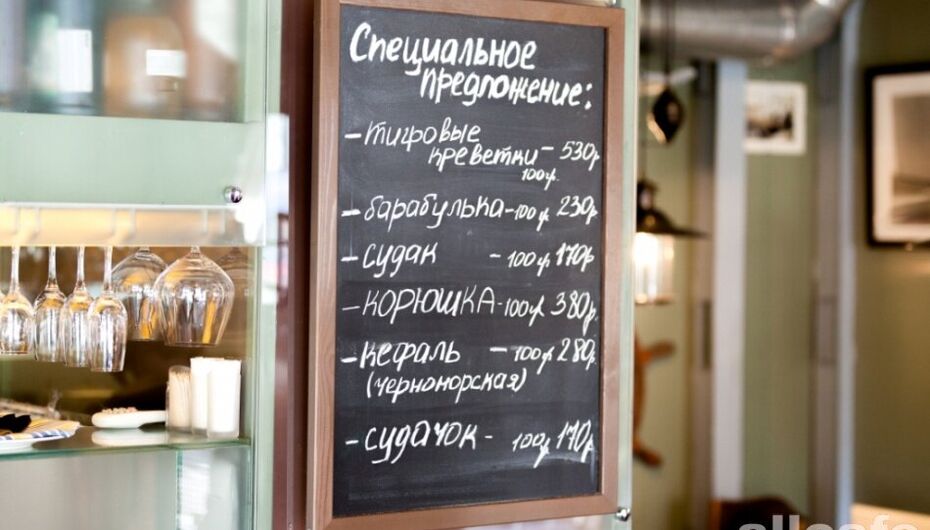 Специальное
предложение:
- тигровые
креветки - 530р
100г.
- барабулька - 100г 230р
- судак - 100г 170р
- корюшка - 100г 380р.
- кефаль - 100г 280р.
(черноморская)
- судачок - 100г 170р